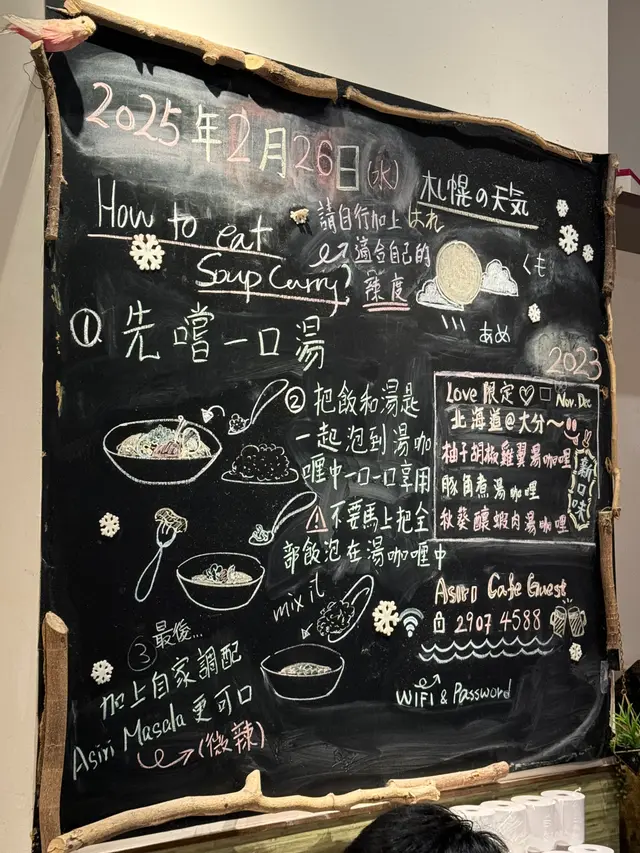 2025年2月26日(水)
How to eat
Soup Curry?
請自行加上
適合自己的
辣度
札幌の天気
はれ
くも
あめ
① 先嚐一口湯
② 把飯和湯是
一起泡到湯咖
喱中一口一口享用
不要馬上把全
部飯泡在湯咖喱中
mix it
③ 最後...
加上自家調配
Asiri Masala 更可口
(微辣)
2023
Love 限定♡ Nov. Dec
北海道@大分~
柚子胡椒雞翼湯咖喱
豚角煮湯咖喱
秋葵釀蝦肉湯咖喱
新口味
Asiri Cafe Guest
2907 4588
WiFi & Password